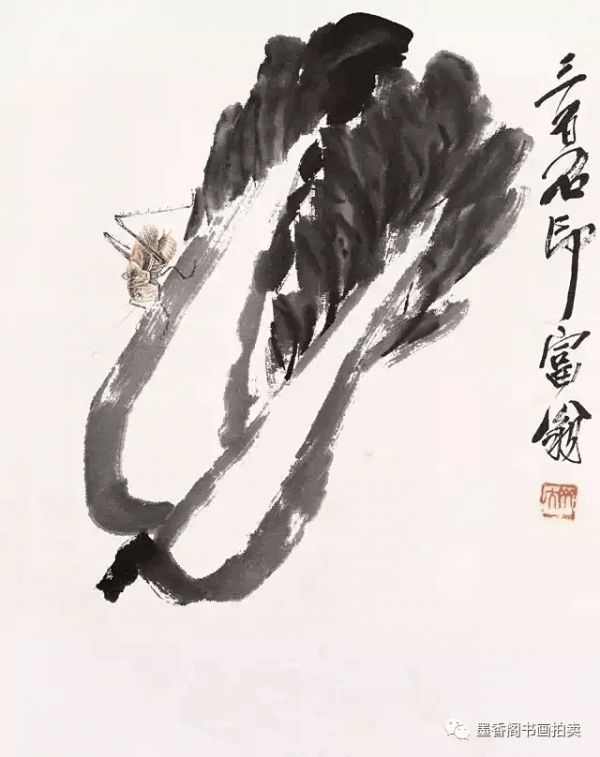 三百石印富翁
墨香阁书画拍卖